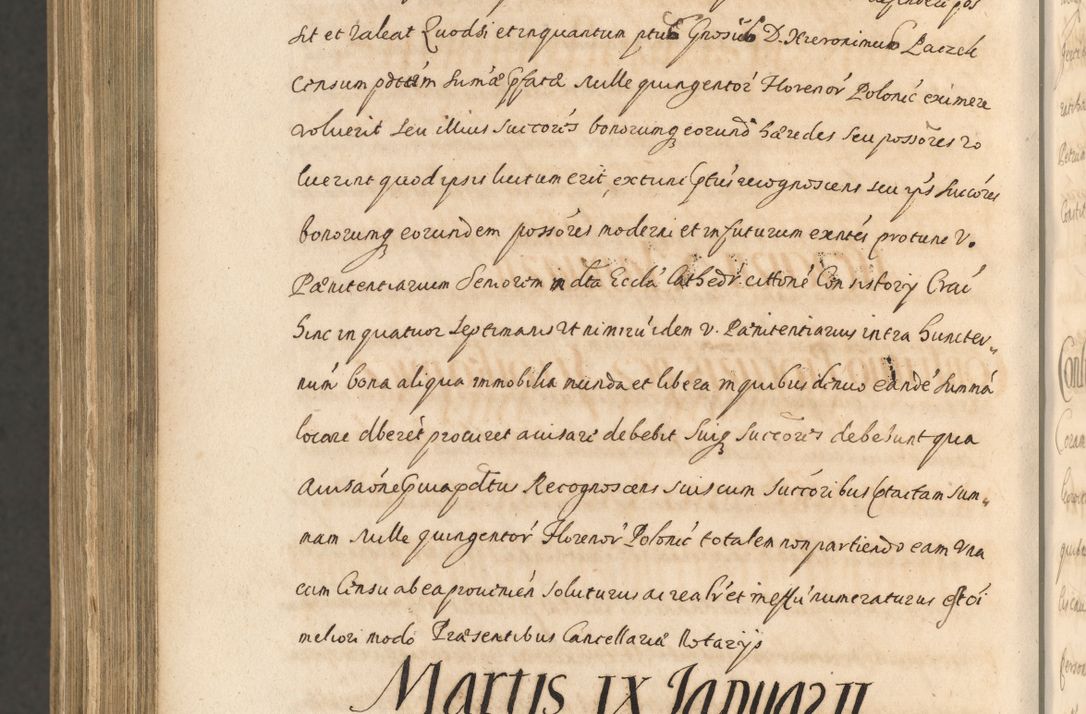 sit et valeat Quodsi et inquantum ptus Gnosus D. Hieronimus Paczek
Censum pdctum Sumae Ppfatae Mille quingentor Florenor Polonic eximere
voluerit seu illius Succores bonorumq eorund haeredes seu possores vo
luerint quod ipsis licitum erit, extunc Ptus recognoscens seu ips Succores
bonorumq eorundem possores moderni et in futurum exntes pro tunc V.
Paenitentiarium Seniorem in dta Eccla Cathedr. cittone Consistorij Crac
hinc in quatuor Septimanis Ut nimiru idem V. Paenitentiarius intra hunc ter-
num bona aliqua immobilia munda et libera in quibus denuo eande Summa
locare dberet procuret avisare debebit Suiq Succores debebunt qua
avisaone Pmia pdctus Recognoscens Suis cum Succoribus Ptactam Sum-
mam Mille quingentor Florenor Polonic totalem non partiendo eam Una
cum Censu ab ea provinien soluturus ac realr et in effu numeraturus est oi
meliori modo Praesentibus Cancellariae Notarijs
Martis IX Januarii